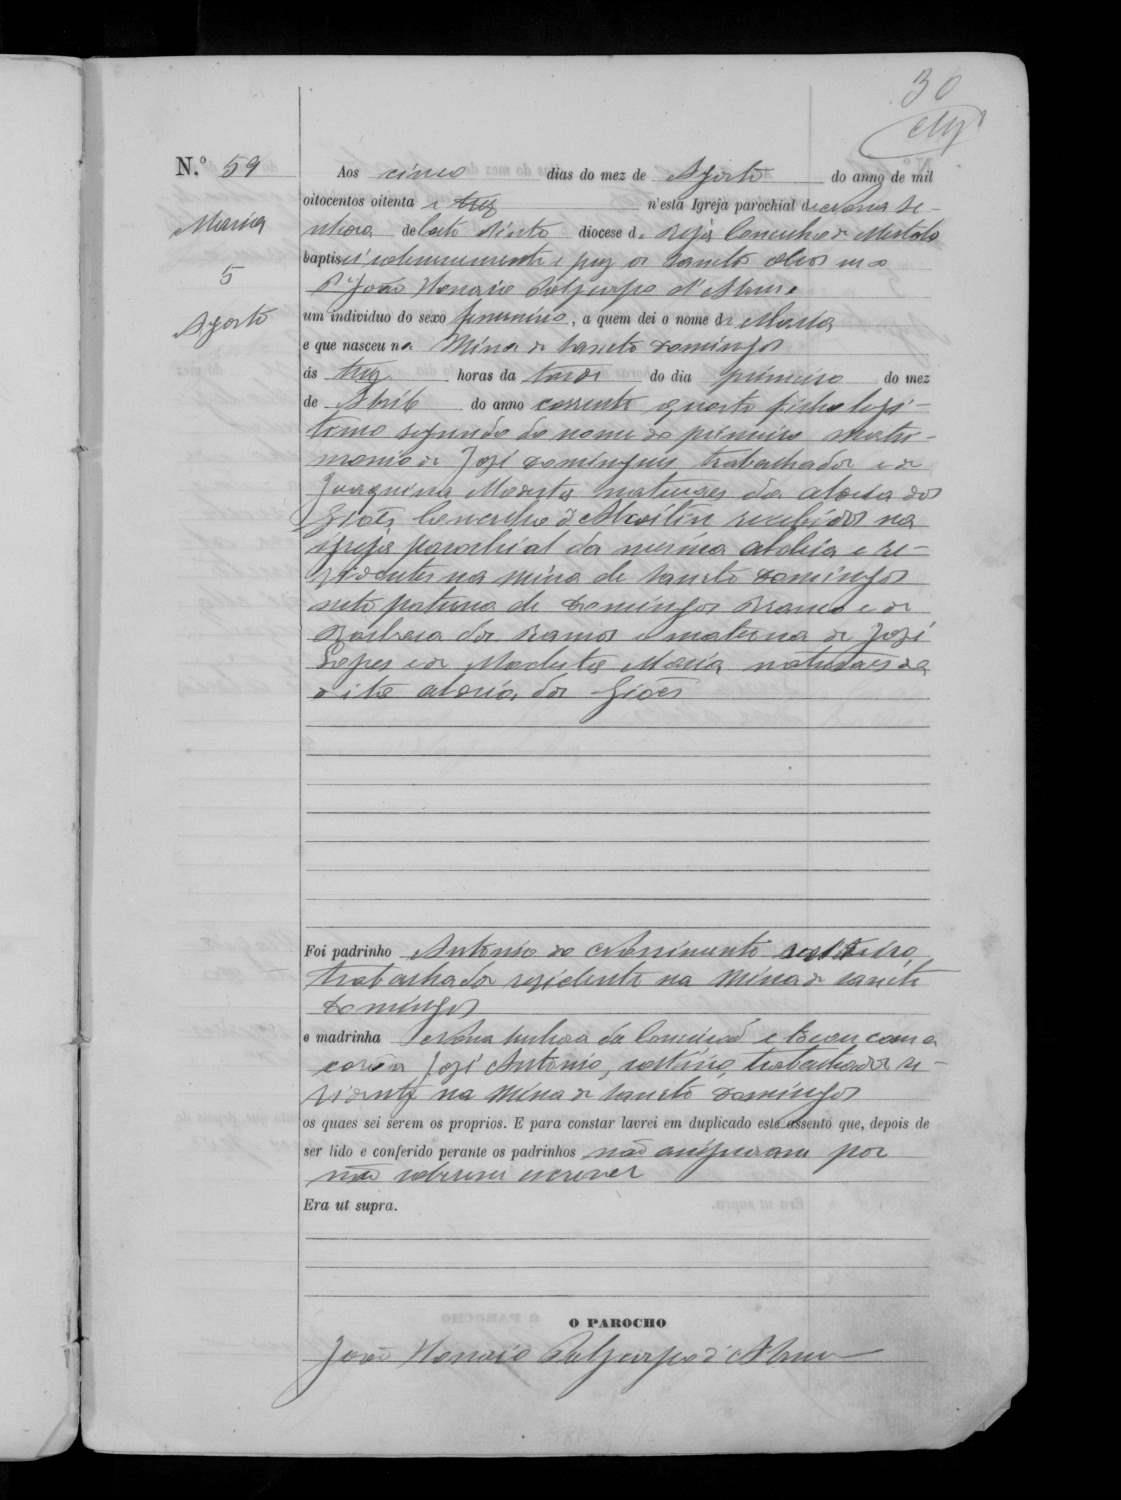 30
N.º 59
Maria
5
Agosto
Aos cinco dias do mez de Agosto do anno de mil
oitocentos oitenta e trez n'esta Igreja parochial de Nossa Se-
nhora de diocese de Beja Concelho de Mertola
baptisei solemnemente e puz os Sanctos oleos
P.e João Polycarpo d'Abreu
um individuo do sexo feminino, a quem dei o nome de Maria
e que nasceu na Mina de Sancto Domingos
ás trez horas da tarde do dia primeiro do mez
de Abril do anno corrente quarto filho legi-
timo segundo do nome do primeiro matri-
monio de José Domingues trabalhador e de
Joaquina Modesta naturaes da aldeia dos
Giões Concelho d'Alcoitim recebidos na
igreja parochial da mesma aldeia e re-
sidentes na Mina de Sancto Domingos
neto paterna de Domingos Branco e de
Barbara dos Ramos e materna de José
Lopes e de Modesta Maria naturaes da
dita aldeia dos Giões
Foi padrinho Antonio do Nascimento solteiro,
trabalhador residente na Mina de Sancto
Domingos
e madrinha Nossa Senhora da Conceição e tocou com a
corôa José Antonio, solteiro, trabalhador re-
sidente na Mina de Sancto Domingos
os quaes sei serem os proprios. E para constar lavrei em duplicado este assento que, depois de
ser lido e conferido perante os padrinhos não assignaram por
não saberem escrever
Era ut supra.
O PAROCHO
João Polycarpo d'Abreu